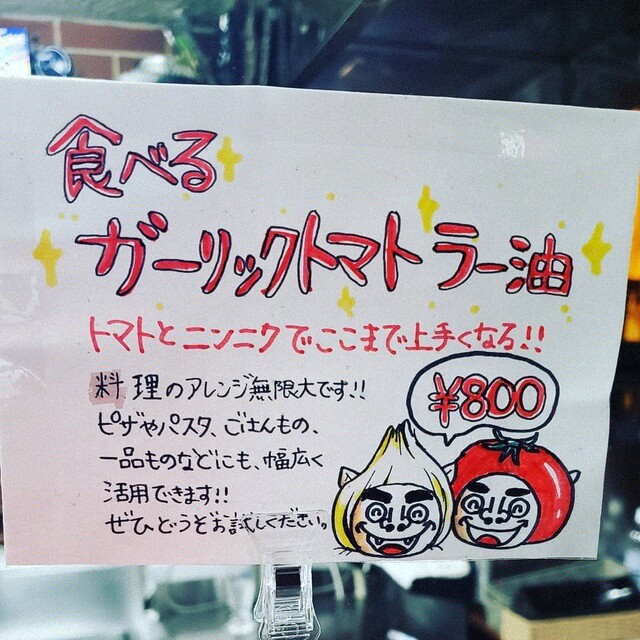 食べる
ガーリックトマトラー油
トマトとニンニクでここまで上手くなる!!
料理のアレンジ無限大です!!
ピザやパスタ、ごはんもの、
一品ものなどにも、幅広く
活用できます!!
ぜひどうぞお試しください。
¥800